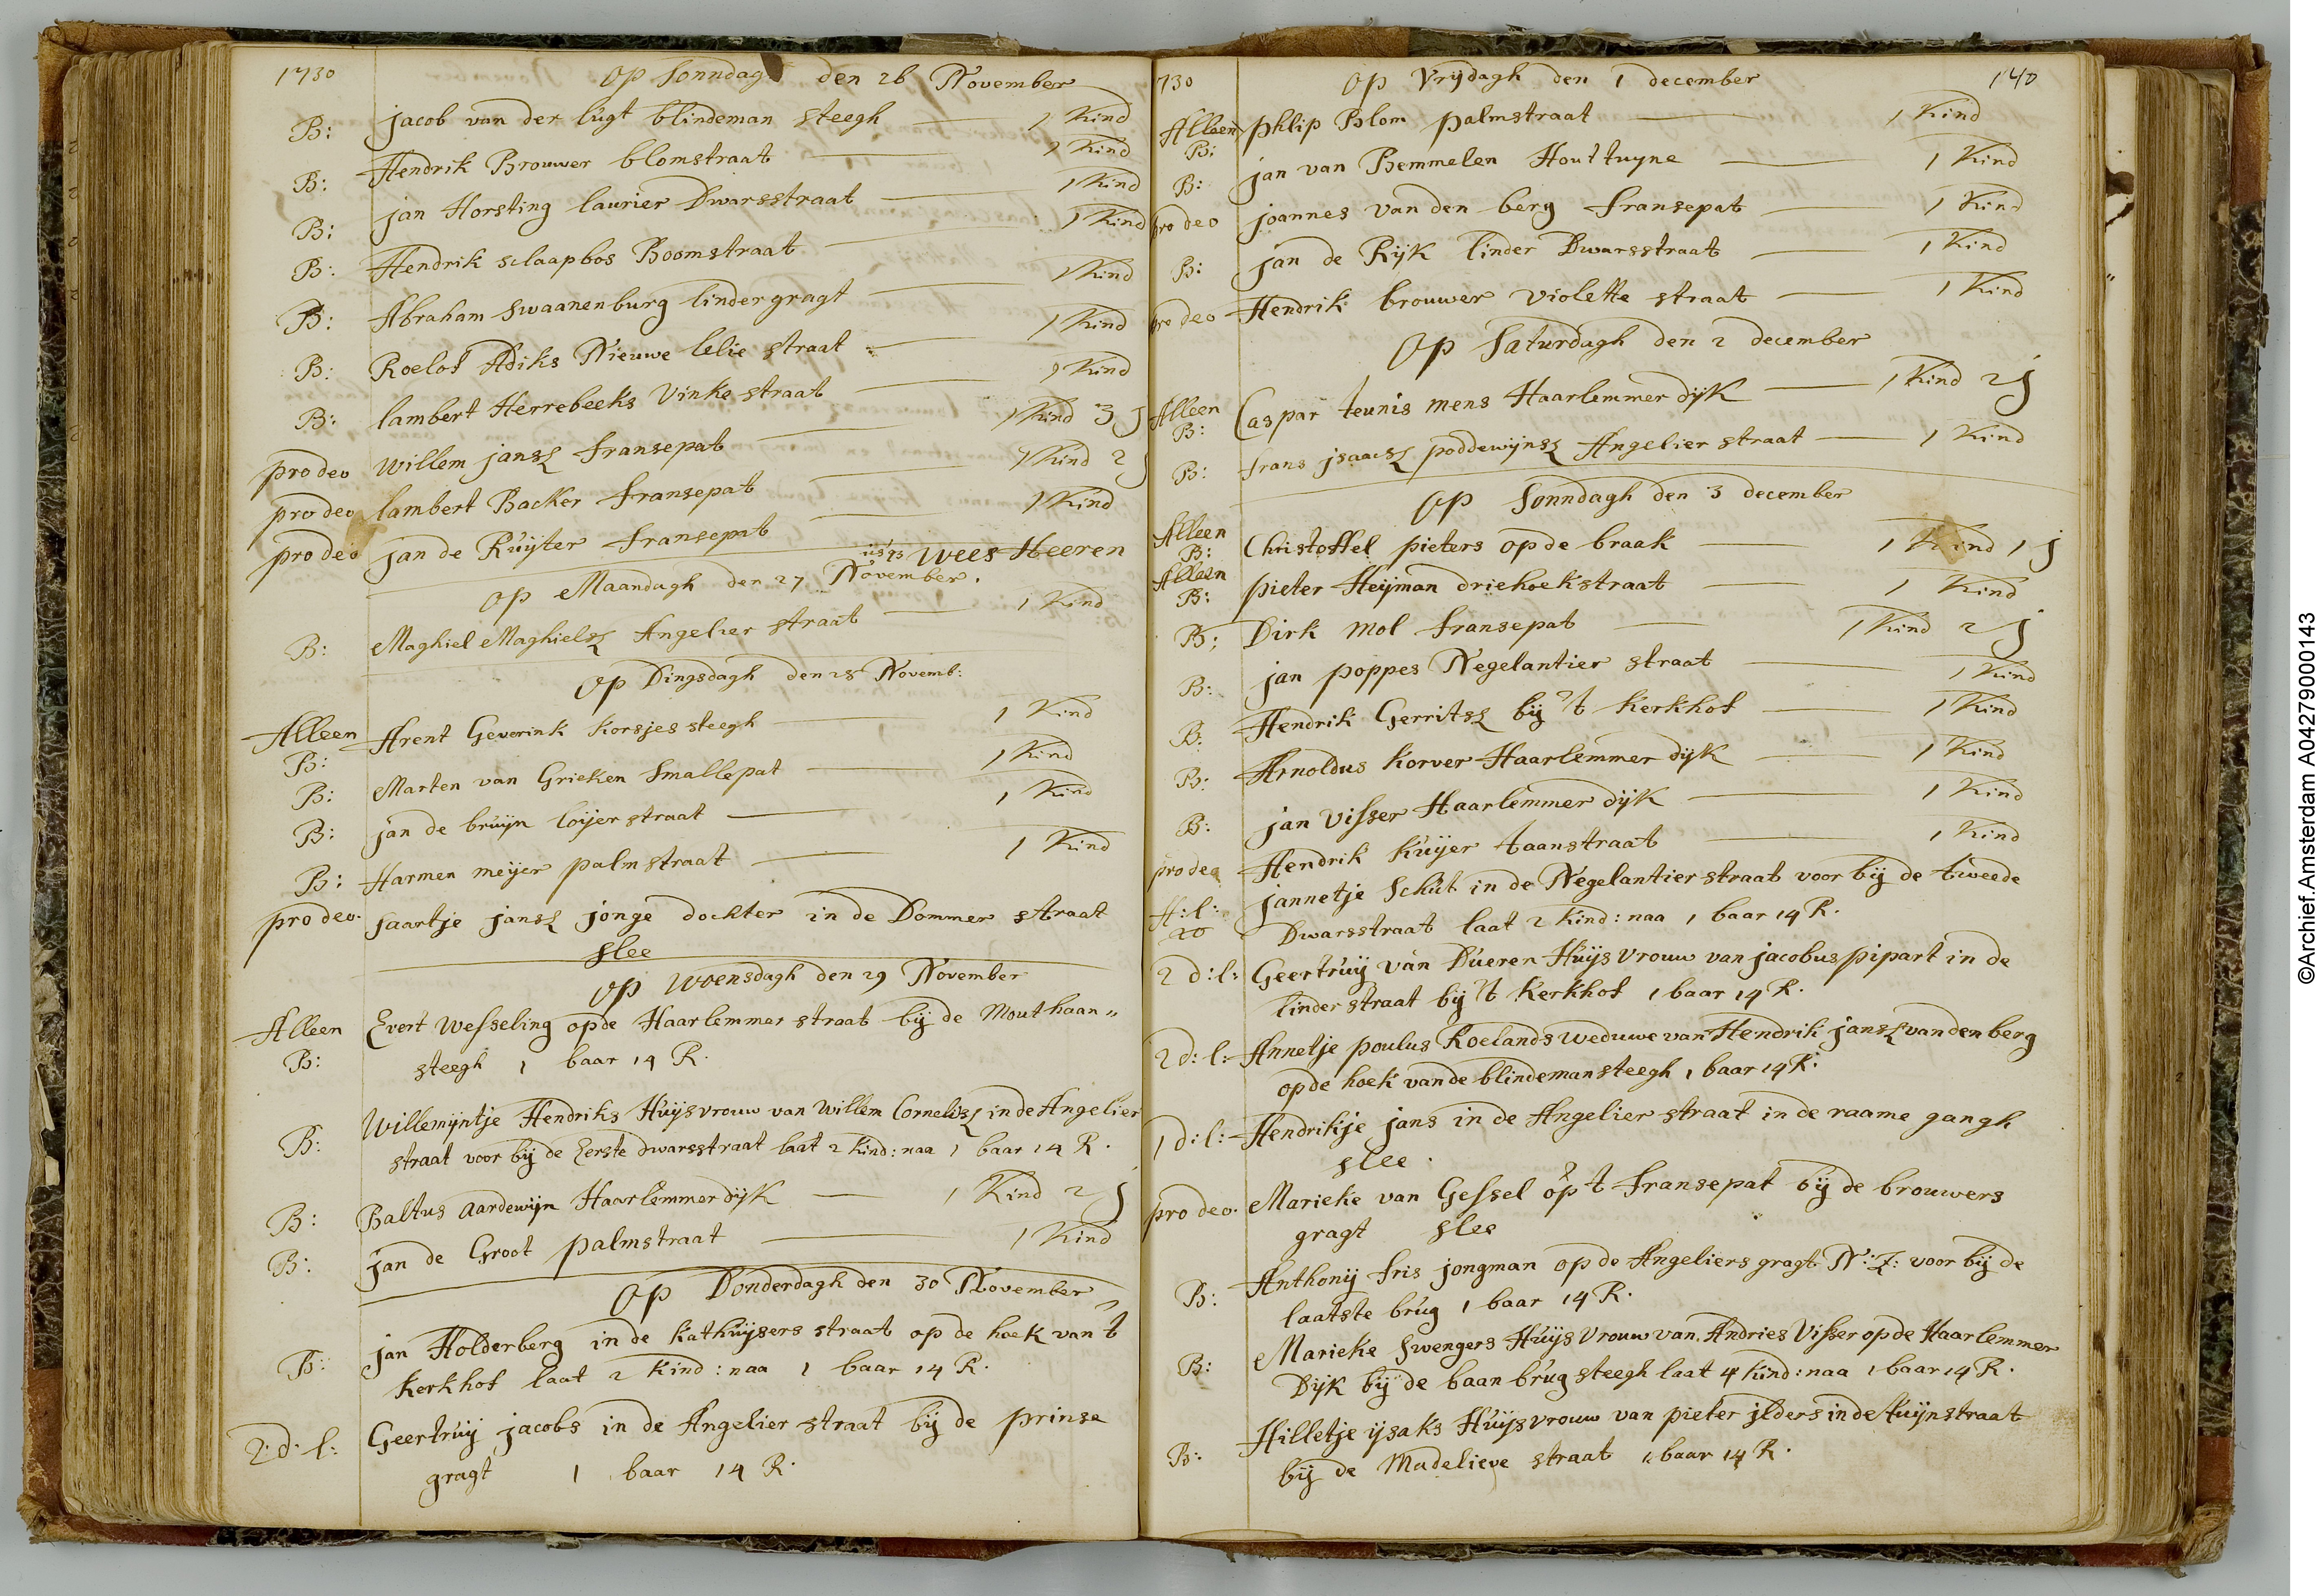 1730 Op Sonndagh den 26 November
B: jacob van der lugt blindeman steegh 1 Kind
B: Hendrik Brouwer blomstraat 1 Kind
B: jan Horsting laurier Dwarsstraat 1 Kind
B: Hendrik slaapbos Boomstraat 1 Kind
B: Abraham Swaanenburg linder gragt 1 Kind
B: Roelof Adiks Nieuwe lelie straat 1 Kind
B: lambert Herrebeeks Vinke straat 1 Kind
pro deo Willem jansz fransepat 1 Kind 3 j
pro deo lambert Backer fransepat 1 Kind 2 j
pro deo jan de Ruijter fransepat 1 Kind
Wees Heeren
Op Maandagh den 27 November.
B: Maghiel Maghielsz Angelier straat 1 Kind
Op Dingsdagh den 28 Novemb:
Alleen B: Arent Geverink Korsjes steegh 1 Kind
B: Marten van Grieken Smallepat 1 Kind
B: jan de bruijn loijerstraat 1 Kind
B: Harmen meijer palmstraat 1 Kind
pro deo. Saartje jansz jonge dochter in de Dommer straat
slee
Op Woensdagh den 29 November
Alleen Evert Wesseling op de Haarlemmer straat bij de Mouthaan"
B: steegh 1 baar 14 R.
B: Willemijntje Hendriks Huijsvrouw van Willem Cornelisz in de Angelier
straat voor bij de Eerste dwarsstraat laat 2 Kind: naa 1 baar 14 R.
B: Baltus Aardewijn Haarlemmer dijk 1 Kind 2 j
B: jan de Groot palmstraat 1 Kind
Op Donderdagh den 30 November
B: jan Holderberg in de Kathuijsers straat op de hoek van 't
Kerkhof laat 2 Kind: naa 1 baar 14 R.
2:d:l: Geertruij jacobs in de Angelier straat bij de prinse
gragt 1 baar 14 R.
730 Op Vrijdagh den 1 december 140
Alleen B: phlip Blom palmstraat 1 Kind
B: jan van Bemmelen Houttuyne 1 Kind
pro deo joannes van den berg fransepat 1 Kind
B: jan de Rijk linder Dwarsstraat 1 Kind
pro deo Hendrik brouwer violette straat 1 Kind
Op Saturdagh den 2 december
Alleen B: Caspar teunis mens Haarlemmer dijk 1 Kind 2 j
B: frans jsaacsz poddewijnsz Angelier straat 1 Kind
Op Sonndagh den 3 december
Alleen B: Christoffel pieters op de braak 1 Kind 1 j
Alleen B: pieter Heijman driehoekstraat 1 Kind
B: Dirk Mol fransepat 1 Kind 2 j
B: jan poppes Negelantier straat 1 Kind
B: Hendrik Gerritsz bij 't Kerkhof 1 Kind
B: Arnoldus Korver Haarlemmer dijk 1 Kind
B: jan Visser Haarlemmer dijk 1 Kind
pro deo Hendrik Kuijer taanstraat 1 Kind
H:l: jannetje Schut in de Negelantier straat voor bij de tweede
20 Dwarsstraat laat 2 Kind: naa 1 baar 14 R.
2 d:l: Geertruij van Dueren Huijsvrouw van jacobus pipart in de
linder straat bij 't Kerkhof 1 baar 14 R.
2 d:l: Annetje poulus Roelands weduwe van Hendrik jansz van den berg
op de hoek van de blindemansteegh 1 baar 14 R.
1 d:l: Hendrikje jans in de Angelier straat in de raame gangh
slee.
pro deo. Marieke van Gessel op 't fransepat bij de brouwers
gragt slee
B: Anthonij fris jongman op de Angeliers gragt N:Z: voor bij de
laatste brug 1 baar 14 R.
B: Marieke Swengers Huijsvrouw van Andries Visser op de Haarlemmer
Dijk bij de baan brug steegh laat 4 Kind: naa 1 baar 14 R.
B: Hilletje ijsaks Huijsvrouw van pieter jlders in de tuijnstraat
bij de Madelieve straat 1 baar 14 R.
©Archief.Amsterdam A04279000143